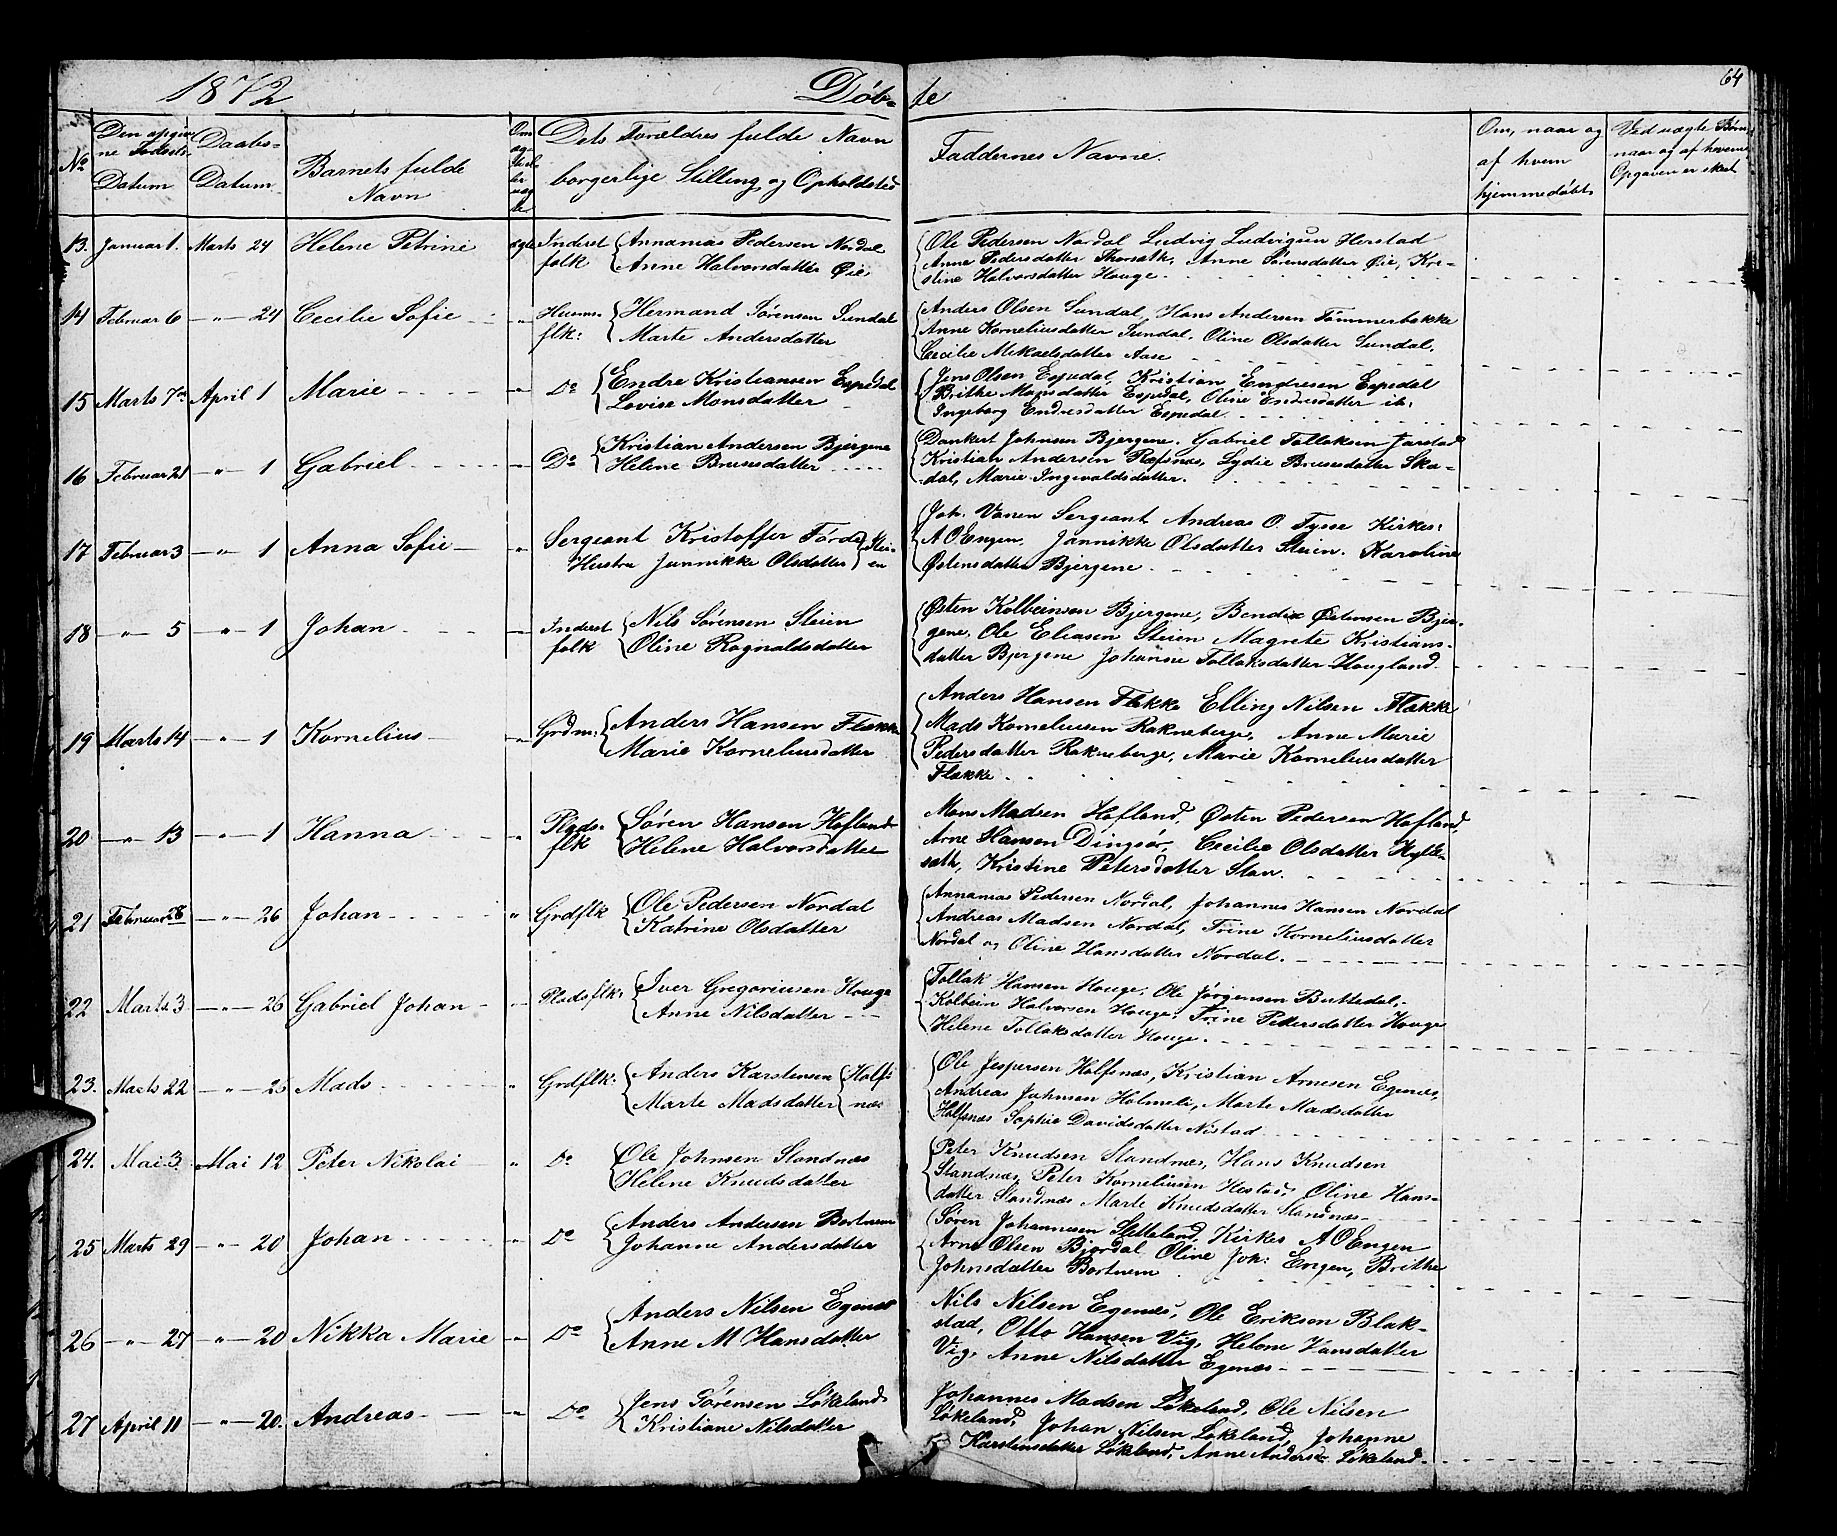 1872 Døb- te 64
No Den opgivne Fødsels- Datum Daabs- Datum Barnets fulde Navn Om ægte eller uægte Dets Forældres fulde Navn borgerlige Stilling og Opholdsted Faddernes Navne. Om, naar og af hvem hjemmedøbt Ved uægte Børn, naar og af hvem Opgaven er skeet
13. Januar 1. Marts 24 Helene Petrine ægte Inderst folk Annanias Pedersen Nordal
Anne Halvorsdatter Øie
Ole Pedersen Nordal Ludvig Ludvigsen Herstad
Anne Pedersdatter Thorsæth, Anne Sørensdatter Øie, Kri-
stine Halvorsdatter Houge.
14 Februar 6 —"— 24 Cecilie Sofie " Huusm: flk: Hermand Sørensen Sundal
Marte Andersdatter
Anders Olsen Sundal, Hans Andersen Tømmerbakke
Anne Korneliusdatter Sundal, Oline Olsdatter Sundal,
Cecilie Mikaelsdatter Aase
15 Marts 7de April 1 Marie " Do Endre Kristiansen Espedal
Lovise Monsdatter
Jens Olsen Espedal, Kristian Endresen Espedal
Brithe Monsdatter Espedal, Oline Endresdatter ib:
Ingeborg Endresdatter Espedal.
16 Februar 21 —"— 1 Gabriel " Do Kristian Andersen Bjergene
Helene Brusesdatter
Dankert Johnsen Bjergene. Gabriel Tollaksen Jarstad
Kristian Andersen Refsnæs, Lydie Brusesdatter Ska-
dal, Marie Ingevaldsdatter.
17 Februar 3 —"— 1 Anna Sofie " Sergeant Kristoffer Førde Stei-
Hustru Jannikke Olsdatter en
Joh. Vanen Sergeant Andreas O. Tysse Kirkes:
A O Engen, Jannikke Olsdatter Steien. Karoline
Østensdatter Bjergene.
18 —"— 5 —"— 1 Johan " Inderst folk Nils Sørensen Steien
Oline Ragnaldsdatter
Østen Kolbeinsen Bjergene, Bendix Østensen Bjer-
gene, Ole Eliasen Steien Magrete Kristians-
datter Bjergene Johanne Tollaksdatter Hougland.
19 Marts 14 —"— 1 Kornelius " Grdm: Anders Hansen Flekke
Marie Korneliusdatter
Anders Hansen Flekke Elling Nilsen Flekke
Mads Korneliussen Rakneberge, Anne Marie
Pedersdatter Rakneberge, Marie Korneliusdatter
Flekke
20 —"— 13 —"— 1 Hanna " Plads- flk Søren Hansen Hofland
Helene Halvorsdatter
Mons Madsen Hofland, Østen Pedersen Hofland,
Arne Hansen Dingsør, Cecilie Olsdatter Hylle-
sæth, Kristine Petersdatter Stan.
21 Februar 28 —"— 26 Johan " Grdflk Ole Pedersen Nordal
Katrine Olsdatter
Annanias Pedersen Nordal, Johannes Hansen Nordal
Andreas Madsen Nordal, Trine Korneliusdatter
Nordal og Oline Hansdatter Nordal.
22 Marts 3 —"— 26 Gabriel Johan " Pladsflk: Iver Gregoriusen Houge
Anne Nilsdatter
Tollak Hansen Houge, Ole Jørgensen Buttedal,
Kolbein Halvorsen Houge, Trine Petersdatter Houge
Helene Tollaksdatter Houge.
23. Marts 22 —"— 26 Mads " Grdflk: Anders Karstensen Holfs
Marte Madsdatter næs
Ole Jespersen Holfsnæs, Kristian Arnesen Egenæs,
Andreas Johnsen Holmeli, Marte Madsdatter
Holfsnæs Sophie Davidsdatter Nistad
24. Mai 3 Mai 12 Peter Nikolai " Do Ole Johnsen Standnæs
Helene Knudsdatter
Peter Knudsen Standnæs, Hans Knudsen
Standnæs, Peter Korneliusen Hestad, Oline Hans-
datter Standnæs Marte Knudsdatter Standnæs
25 Marts 29 —"— 20 Johan " Do Anders Andersen Bortnem
Johanne Andersdatter
Søren Johannesen Sætteland, Kirkes A O Engen
Arne Olsen Bjordal Oline Joh: Engen, Brithe
Johnsdatter Bortnem
26 —"— 27 —"— 20 Nikka Marie " Do Anders Nilsen Egenæs
Anne M Hansdatter
Nils Nilsen Egenæs, Ole Eriksen Blak-
stad, Otto Hansen Vig, Helene Hansdatter
Vig, Anne Nilsdatter Egenæs
27 April 11 —"— 20. Andreas " Do Jens Sørensen Løkeland
Kristiane Nilsdatter
Johannes Madsen Løkeland, Ole Nilsen
Løkeland, Johan Nilsen Løkeland, Johanne
Karstensdatter Løkeland, Anne Andersd Løkeland.